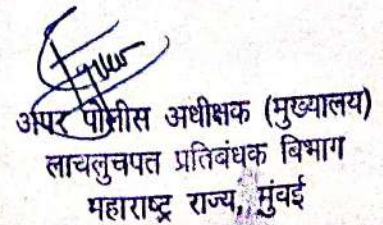 अपर पोलीस अधीक्षक (मुख्यालय)
लाचलुचपत प्रतिबंधक विभाग
महाराष्ट्र राज्य, मुंबई